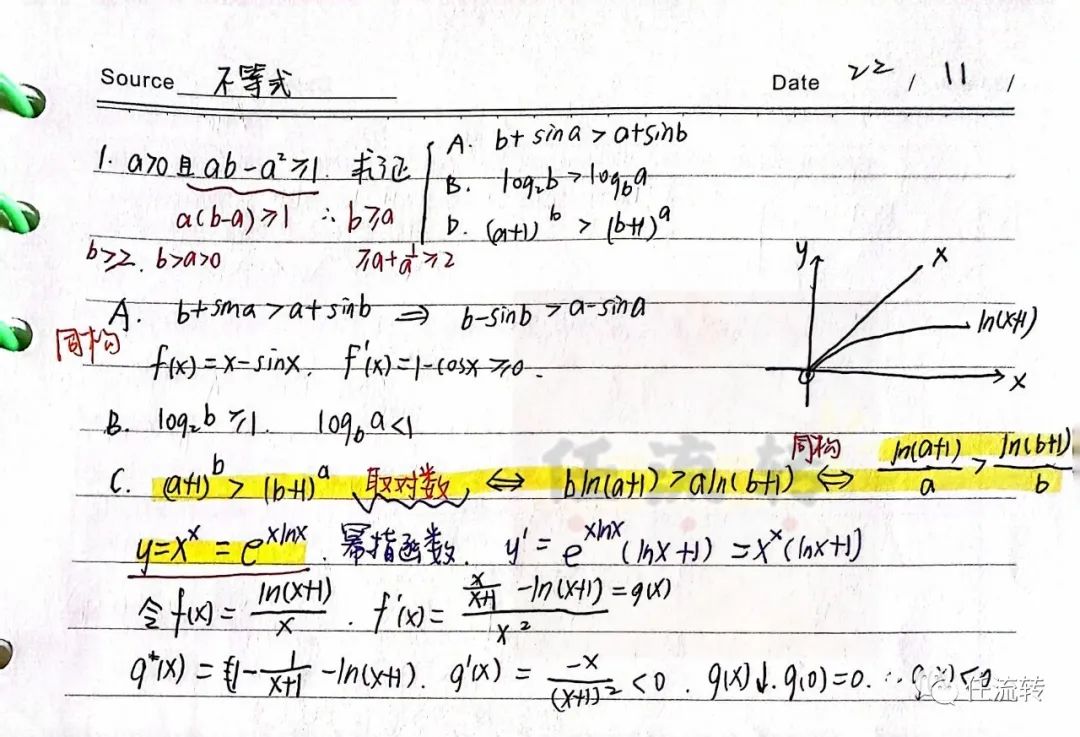 Source 不等式 Date 22 / 11 /
1. a>0且ab-a²≥1. 求证 A. b+sina>a+sinb
B. log₂b>log_b a
D. (a+1)^b > (b+1)^a
a(b-a)≥1 ∴b≥a
b≥2. b>a>0 ≥a+1/a≥2
A. b+sina>a+sinb ⇒ b-sinb>a-sina
同构
f(x)=x-sinx. f'(x)=1-cosx≥0.
y x ln(x+1) x
B. log₂b≥1. log_b a<1
C. (a+1)^b > (b+1)^a 取对数 ⇔ bln(a+1)>aln(b+1) 同构 ⇔ ln(a+1)/a > ln(b+1)/b
y=x^x=e^(xlnx). 幂指函数. y'=e^(xlnx)(lnx+1)=x^x(lnx+1)
令f(x)=ln(x+1)/x. f'(x)=(x/(x+1) -ln(x+1)=g(x))/x²
g(x)=1-1/(x+1)-ln(x+1). g'(x)=-x/(x+1)²<0. g(x)↓. g(0)=0. ∴g(x)<0
任流转